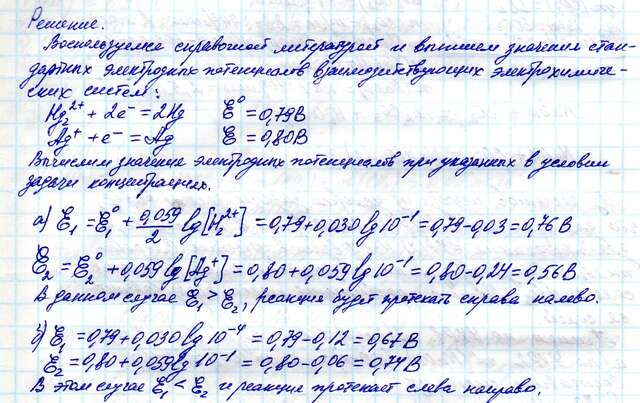 Решение.
Воспользуемся справочной литературой и выпишем значения стан-
дартных электродных потенциалов взаимодействующих электрохимиче-
ских систем:
Hg₂²⁺ + 2e⁻ = 2Hg E° = 0,79В
Ag⁺ + e⁻ = Ag E = 0,80В
Вычислим значение электродных потенциалов при указанных в условии
задачи концентрациях.
а) E₁ = E₁° + 0,059/2 lg[H₂²⁺] = 0,79 + 0,030 lg 10⁻¹ = 0,79 - 0,03 = 0,76 В
E₂ = E₂° + 0,059 lg[Ag⁺] = 0,80 + 0,059 lg 10⁻¹ = 0,80 - 0,24 = 0,56 В
В данном случае E₁ > E₂, реакция будет протекать справа налево.
б) E₁ = 0,79 + 0,030 lg 10⁻⁴ = 0,79 - 0,12 = 0,67 В
E₂ = 0,80 + 0,059 lg 10⁻¹ = 0,80 - 0,06 = 0,74 В
В этом случае E₁° < E₂ и реакция протекает слева направо.